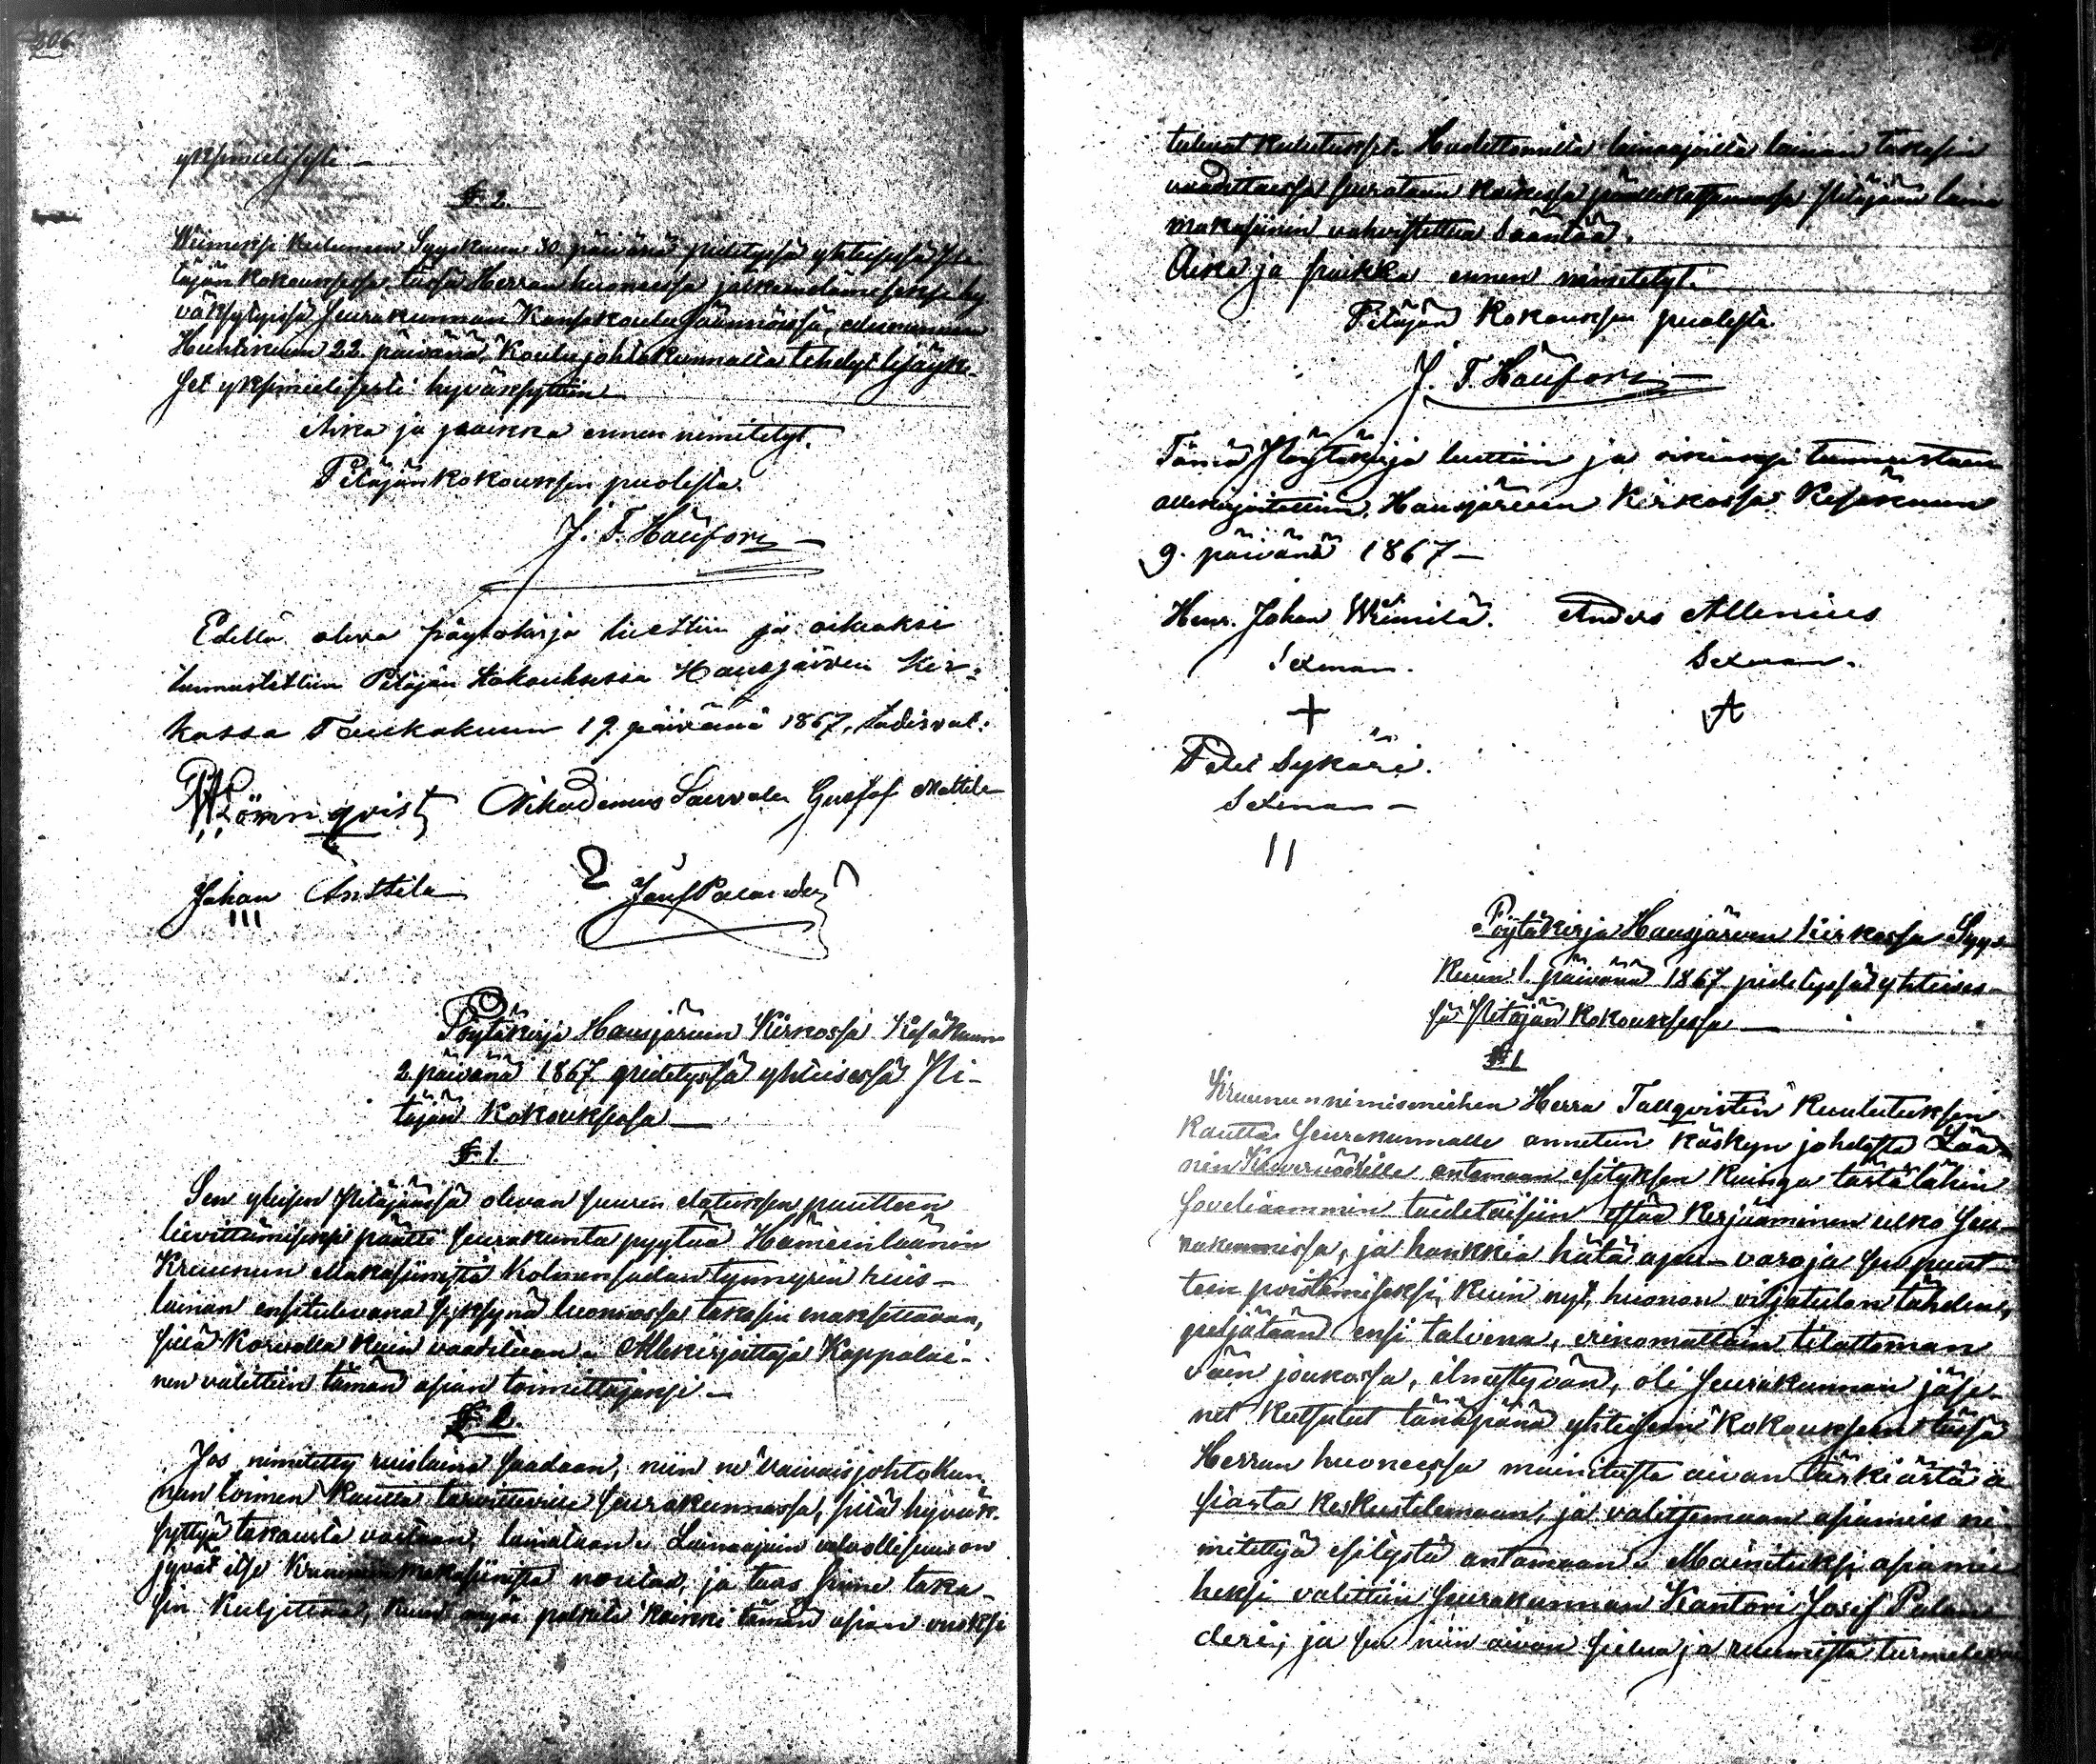 yksimielisesti —
§ 2.
Wiimeksi kuluneen Syyskuun 30 päivänä pidetyssä yhteisessä Pi-
täjän kokouksessa tässä Herran huoneessa järkeenelämiseksi hy
väksytyissä Seurakunnan Kansakoulu säännöissä,
Huhtikuun 22 päivänä, Koulujohtokunnalta tehdyt lisäyk-
set yksimielisesti hyväksyttiin.
Aika ja paikka ennen nimitetyt.
Pitäjänkokouksen puolesta.
J. F. Häufors
Edellä oleva pöytäkirja luettiin ja oikeaksi
tunnustettiin Pitäjän Kokouksessa Hausjärven Kir-
kossa Toukokuun 19 päivänä 1867, todistavat:
Lönnqvist Nikodemus Sauvala Gustaf Mattila
Johan Anttila Josef Palander
III
Pöytäkirja Hausjärven Kirkossa Kesäkuun
2 päivänä 1867 pidetyssä yhteisessä Pi-
täjän Kokouksessa —
§ 1.
Sen yleisen Pitäjässä olevan suuren elatuksen puutteen
lievittämiseksi päätti seurakunta pyytää Hämeenläänin
Kruunun Makasiinista Kolmensadan tynnyrin ruis-
lainan ensitulevana syksynä luonnossa takasin maksettavan,
sillä korvolla kuin vaaditaan. Allekirjoittaja Kappalai-
nen valittiin tämän asian toimittajaksi —
§. 2.
Jos nimitetty ruislaina saadaan, niin se vaivaisjohtokun-
nan toimen kautta tarvitseville seurakunnassa, sitä hyväk-
syttyä takausta vastaan, lainataan. Lainaajain velvollisuus on
jyvät itse Kruunun makasiinista noutaa, ja taas sinne taka
sin kuljettaa, kuin myös palkita kaikki tämän asian vuoksi
tulevat kulutukset. Huolettomilta lainaajoilta lainan takasin
vaadittaessa seurataan kaikessa Pitäjään laina
makasiinin vahvistettua Sääntöä.
Aika ja paikka ennen nimitetyt.
Pitäjän Kokouksen puolesta
J. F. Häufors
Tämä Pöytäkirja luettiin ja oikiaksi tunnustaen
allekirjoitettiin, Hausjärven Kirkossa Kesäkuun
9. päivänä 1867 —
Henr. Johan Weimila. Anders Allenius
Sexman. Sexman.
+ A
Petter Sykäri.
Sexman —
II
Pöytäkirja Hausjärven Kirkossa Syys
kuun 1. päivänä 1867 pidetyssä yhteises-
sä Pitäjän Kokouksessa —
§ 1
Kruununnimismiehen Herra Tallqvistin Kuulutuksen
kautta Seurakunnalle annetun käskyn johdosta Lää-
nin Kuvernöörille antamaan esityksen kuinga tästälähin
soveliaammin taidetaisiin estää kerjääminen ulko seu-
rakunnissa, ja hankkia hätä apu-varoja sen puut-
teen poistamiseksi, kuin nyt, huonon viljatulon tähden,
peljätään ensi talvena, erinomattain tilattoman
väen joukossa, ilmestyvän, oli seurakunnan jäse-
net kutsutut tänäpänä yhteiseen kokoukseen tässä
Herran huoneessa mainitusta aivan tärkiästä a
siasta keskustelemaan, ja valitsemaan asiamies ni-
mitettyä esitystä antamaan. Mainituksi asiamie
heksi valittiin seurakunnan Kanttori Josef Palan
deri; ja sen niin aivan sielua ja ruumista turmelevan